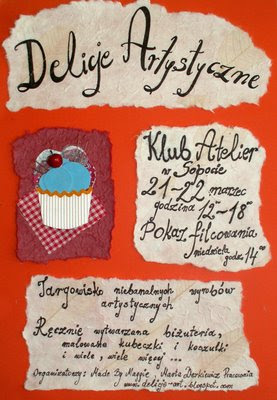 Delicje Artystyczne
Klub Atelier
w Sopocie
21-22 marzec
godzina 12-18⁰⁰
Pokaz filcowania
niedziela
godz. 14⁰⁰
Targowisko niebanalnych wyrobów
artystycznych
Ręcznie wytwarzana biżuteria,
malowane kubeczki i koszulki
i wiele, wiele więcej ...
Organizatorzy: Made by Maggie, Marta Derkiewicz Pracownia
www.delicje-art.blogspot.com